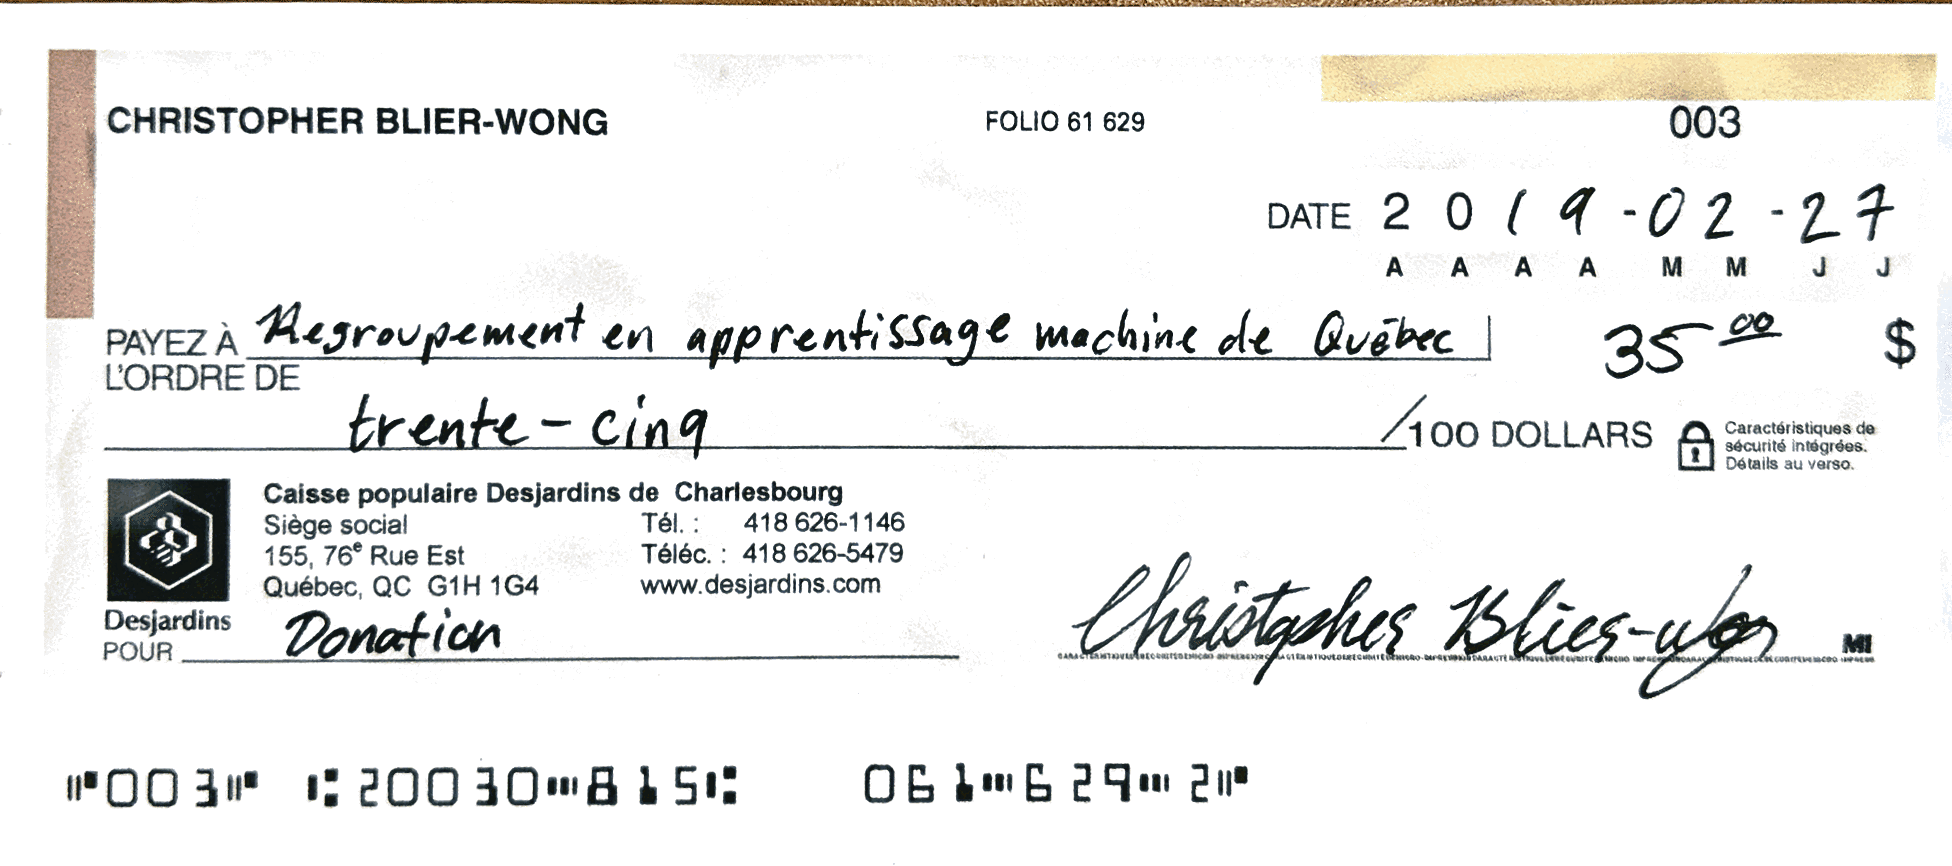 CHRISTOPHER BLIER-WONG FOLIO 61 629 003
DATE 2019-02-27
A A A A M M J J
PAYEZ À Regroupement en apprentissage machine de Québec 35 00 $
L'ORDRE DE
trente-cinq /100 DOLLARS
Caractéristiques de
sécurité intégrées.
Détails au verso.
Caisse populaire Desjardins de Charlesbourg
Siège social Tél. : 418 626-1146
155, 76e Rue Est Téléc. : 418 626-5479
Québec, QC G1H 1G4 www.desjardins.com
Desjardins
POUR Donation
Christopher Blier-Wong MI
003 20030 815 061 629 2